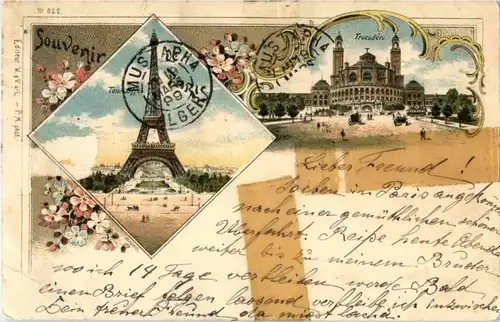 Nr 822
Souvenir
Trocadéro
Tour
MUSTAPHA
ALGER
Lieber Freund!
Soeben in Paris angekom
nach einer gemüthlichen
Überfahrt. Reise heute Abend
weiter bis zu meinem Bruder
wo ich 14 Tage verbleiben werde. Bald
einen Brief folgen lassend verbleibe ich inzwischen
Dein Freund